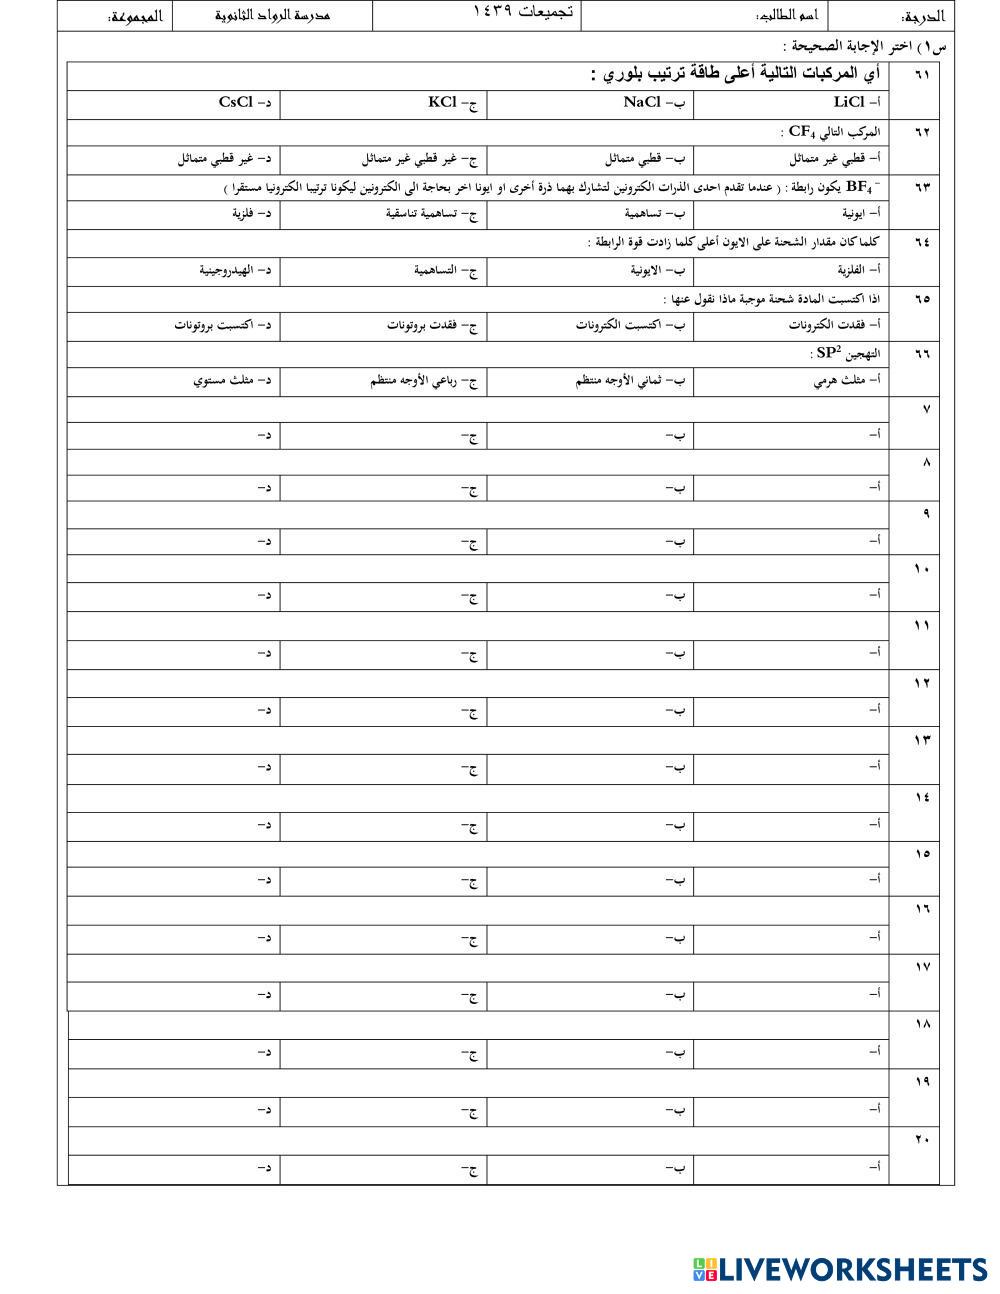 الدرجة: اسم الطالب: تجميعات ١٤٣٩ مدرسة الرواد الثانوية المجموعة:
س١) اختر الإجابة الصحيحة :
٦١ أي المركبات التالية أعلى طاقة ترتيب بلوري :
أ– LiCl ب– NaCl ج– KCl د– CsCl
٦٢ المركب التالي CF₄ :
أ– قطبي غير متماثل ب– قطبي متماثل ج– غير قطبي غير متماثل د– غير قطبي متماثل
٦٣ BF₄⁻ يكون رابطة : ( عندما تقدم احدى الذرات الكترونين لتشارك بهما ذرة أخرى او ايونا اخر بحاجة الى الكترونين ليكونا ترتيبا الكترونيا مستقرا )
أ– ايونية ب– تساهمية ج– تساهمية تناسقية د– فلزية
٦٤ كلما كان مقدار الشحنة على الايون أعلى كلما زادت قوة الرابطة :
أ– الفلزية ب– الايونية ج– التساهمية د– الهيدروجينية
٦٥ اذا اكتسبت المادة شحنة موجبة ماذا نقول عنها :
أ– فقدت الكترونات ب– اكتسبت الكترونات ج– فقدت بروتونات د– اكتسبت بروتونات
٦٦ التهجين SP² :
أ– مثلث هرمي ب– ثماني الأوجه منتظم ج– رباعي الأوجه منتظم د– مثلث مستوي
٧
أ– ب– ج– د–
٨
أ– ب– ج– د–
٩
أ– ب– ج– د–
١٠
أ– ب– ج– د–
١١
أ– ب– ج– د–
١٢
أ– ب– ج– د–
١٣
أ– ب– ج– د–
١٤
أ– ب– ج– د–
١٥
أ– ب– ج– د–
١٦
أ– ب– ج– د–
١٧
أ– ب– ج– د–
١٨
أ– ب– ج– د–
١٩
أ– ب– ج– د–
٢٠
أ– ب– ج– د–
LIVE LIVEWORKSHEETS